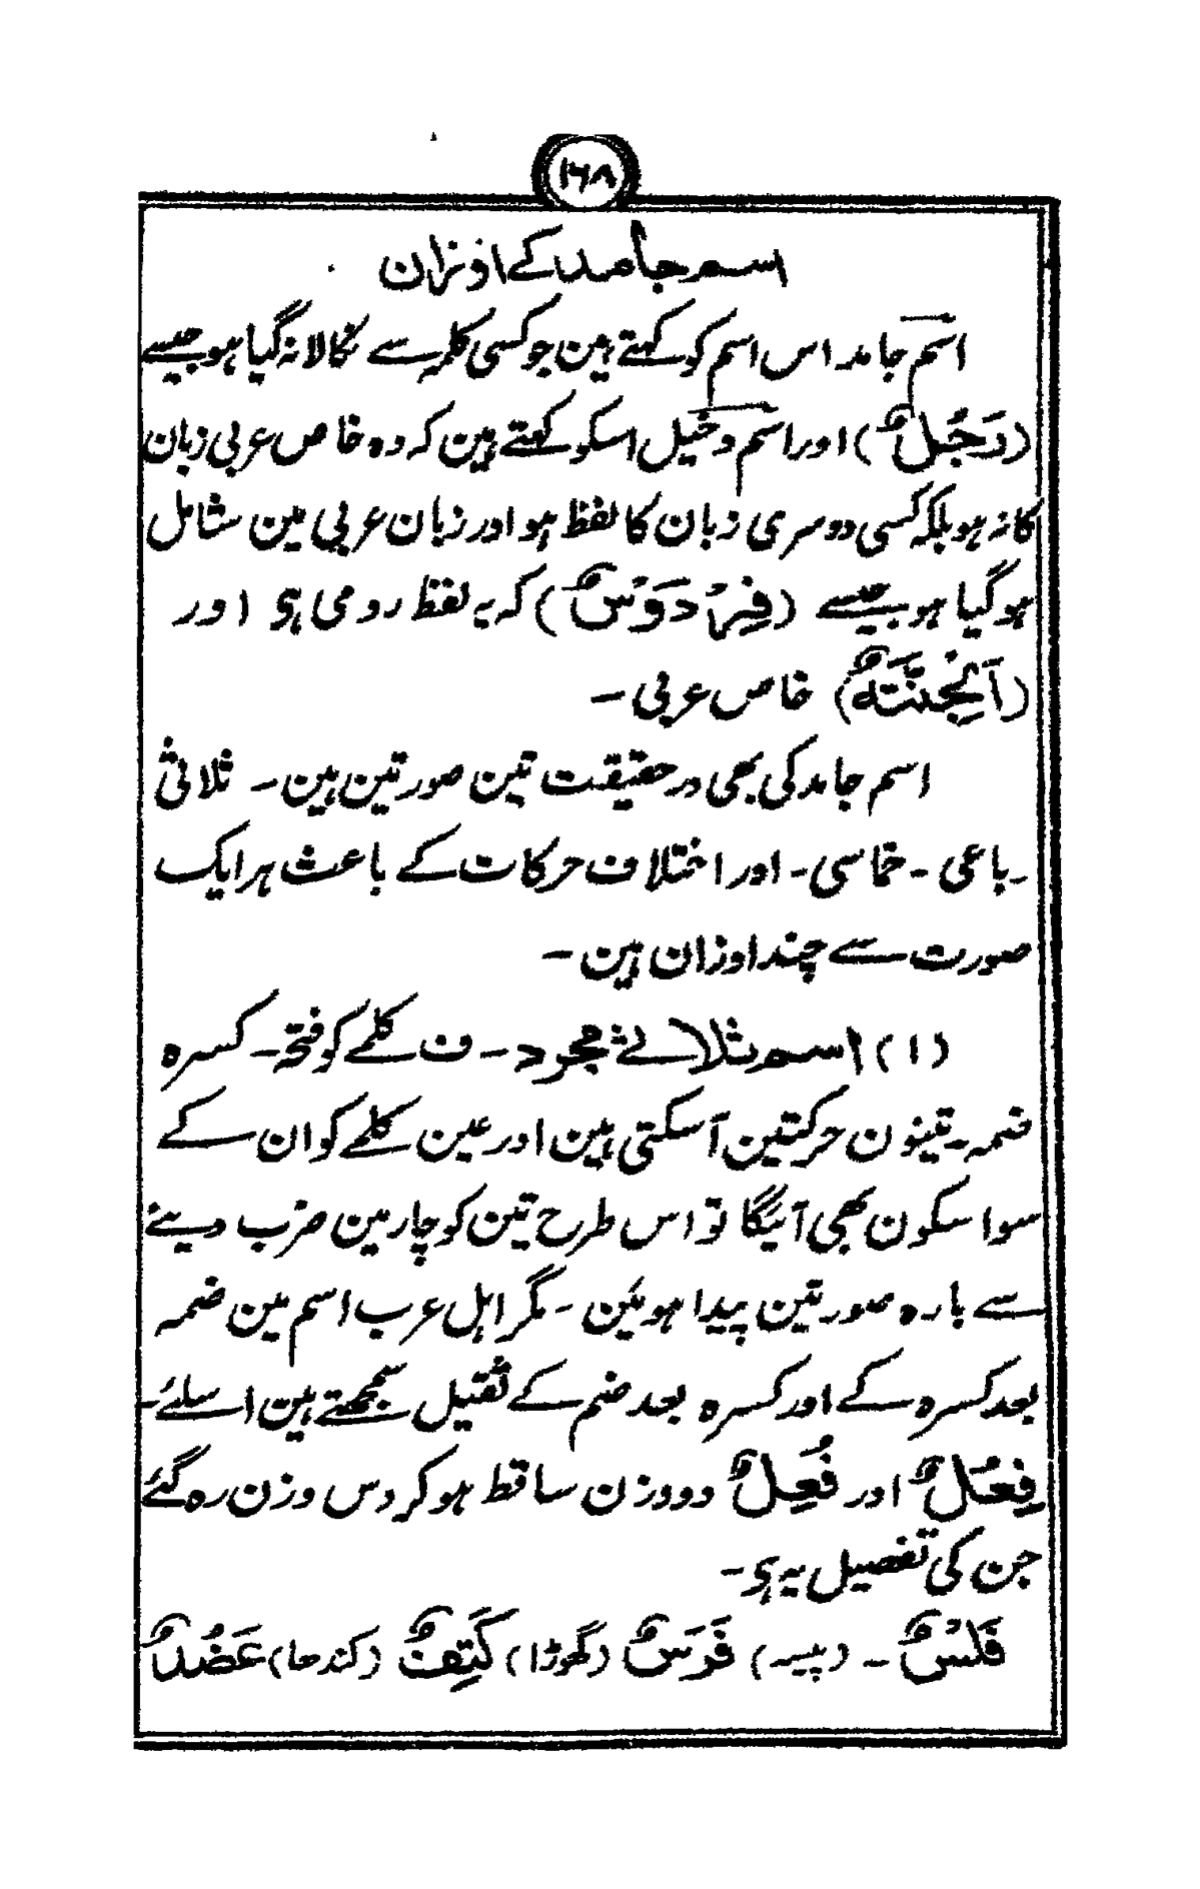 ۱۶۸
اسم جامد کے اوزان
اسم جامد اس اسم کو کہتے ہین جو کسی کلمہ سے نکالا نہ گیا ہو جیسے
(رَجُلٌ) اور اسم دخیل اسکو کہتے ہین کہ وہ خاص عربی زبان
کا نہ ہو بلکہ کسی دوسری زبان کا لفظ ہو اور زبان عربی مین شامل
ہو گیا ہو جیسے (فِرْدَوْسٌ) کہ یہ لفظ رومی ہی اور
(اَلْجَنَّةُ) خاص عربی ۔
اسم جامد کی بھی در حقیقت تین صورتین ہین ۔ ثلاثی
رباعی ۔ خماسی ۔ اور اختلاف حرکات کے باعث ہر ایک
صورت سے چند اوزان ہین ۔
(۱) اسم ثلاثی مجرد ۔ ف کلمے کو فتحہ ۔ کسرہ
ضمہ ۔ تینون حرکتین آسکتی ہین اور عین کلمے کو ان کے
سوا سکون بھی آئیگا تو اس طرح تین کو چار مین ضرب دیئے
سے بارہ صورتین پیدا ہوئین ۔ مگر اہل عرب اسم مین ضمہ
بعد کسرہ کے اور کسرہ بعد ضم کے ثقیل سمجھتے ہین اسلئے ۔
فِعُلٌ اور فُعِلٌ دو وزن ساقط ہو کر دس وزن رہ گئے
جن کی تفصیل یہ ہی ۔
فَلْسٌ ۔ (پیسہ) فَرَسٌ (گھوڑا) کَتِفٌ (کندھا) عَضُدٌ